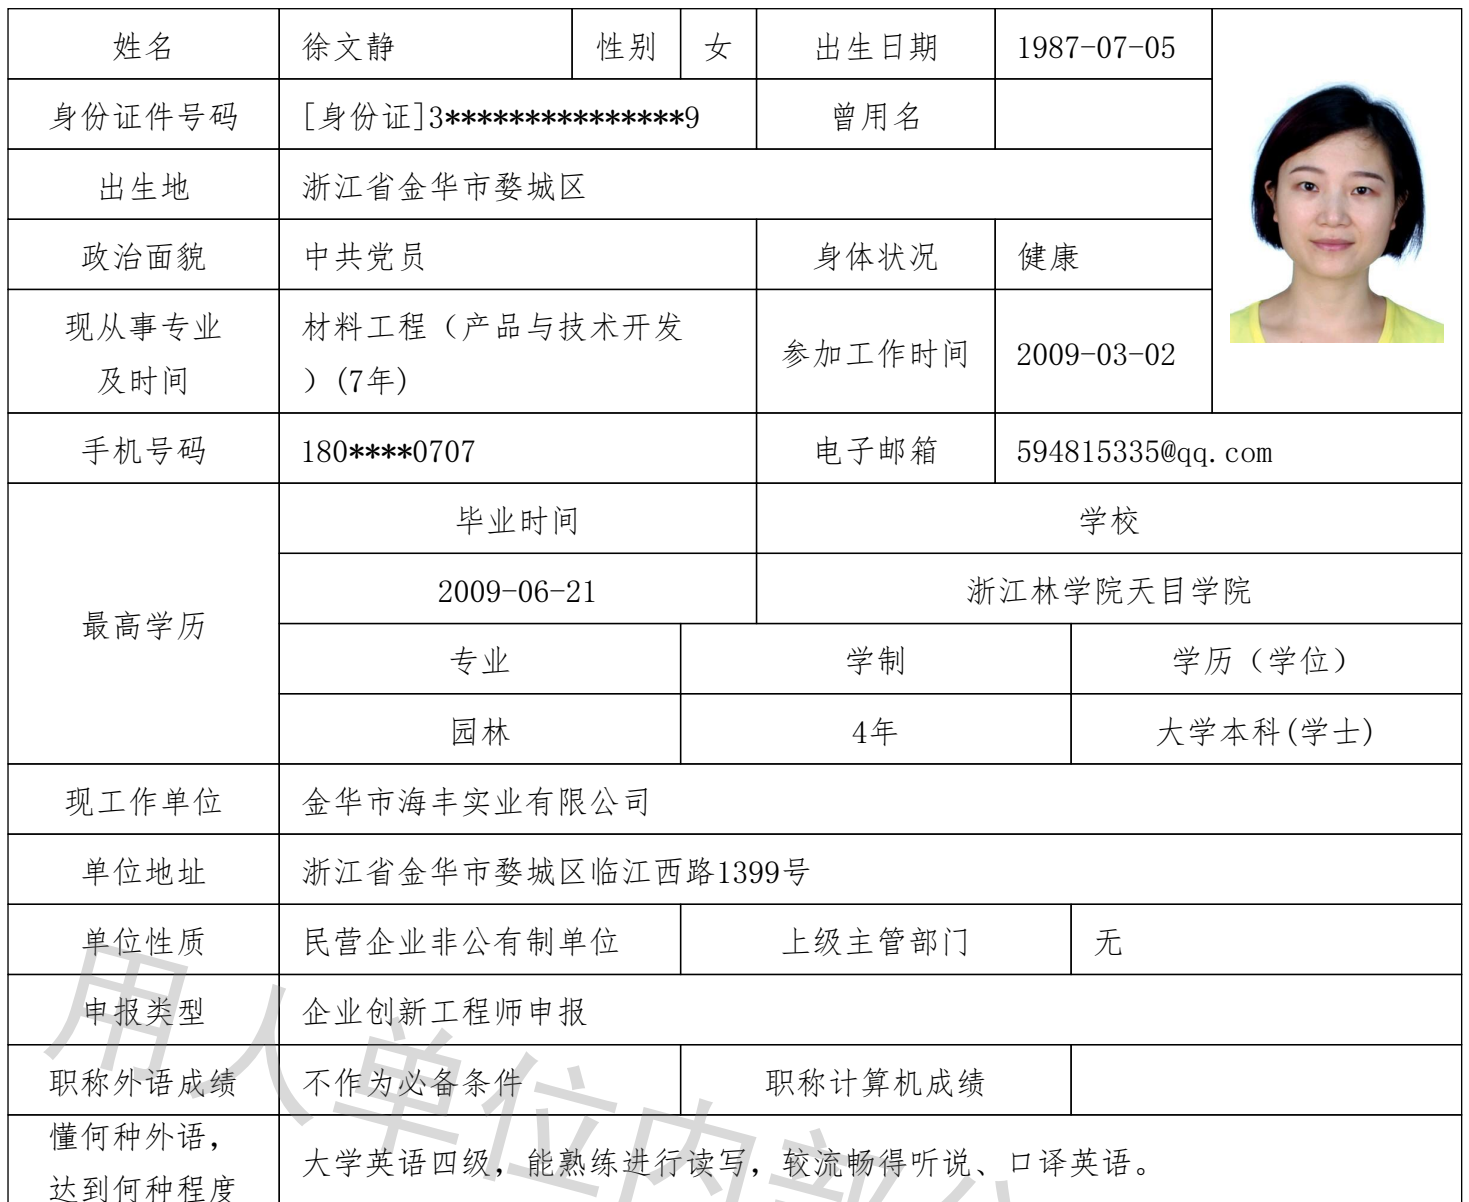 姓名 徐文静 性别 女 出生日期 1987-07-05
身份证件号码 [身份证]3***************9 曾用名
出生地 浙江省金华市婺城区
政治面貌 中共党员 身体状况 健康
现从事专业及时间 材料工程（产品与技术开发）(7年) 参加工作时间 2009-03-02
手机号码 180****0707 电子邮箱 594815335@qq.com
最高学历
毕业时间 学校
2009-06-21 浙江林学院天目学院
专业 学制 学历（学位）
园林 4年 大学本科(学士)
现工作单位 金华市海丰实业有限公司
单位地址 浙江省金华市婺城区临江西路1399号
单位性质 民营企业非公有制单位 上级主管部门 无
申报类型 企业创新工程师申报
职称外语成绩 不作为必备条件 职称计算机成绩
懂何种外语，
达到何种程度
大学英语四级，能熟练进行读写，较流畅得听说、口译英语。
用人单位内部